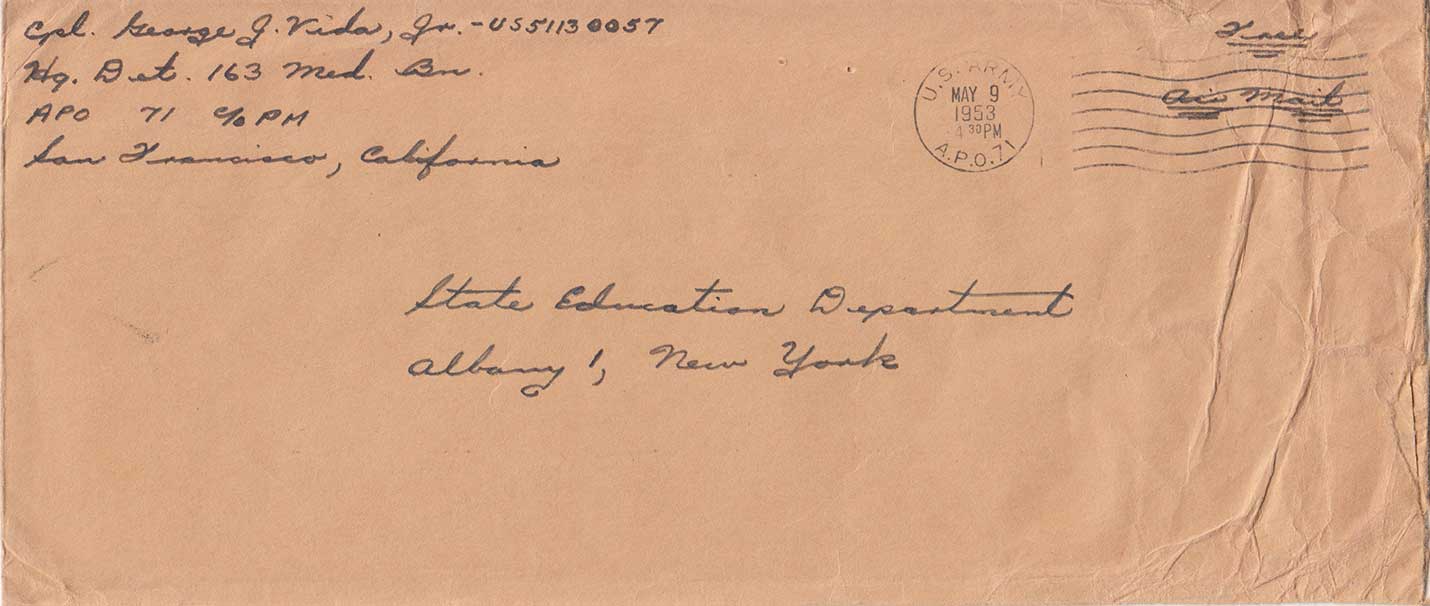 Cpl. George J. Vida, Jr. - US51130057
Hq. Det. 163 Med. Bn.
APO 71 c/o PM
San Francisco, California
Free
Air Mail
U.S. ARMY
MAY 9
1953
4 30 PM
A.P.O. 71
State Education Department
Albany 1, New York